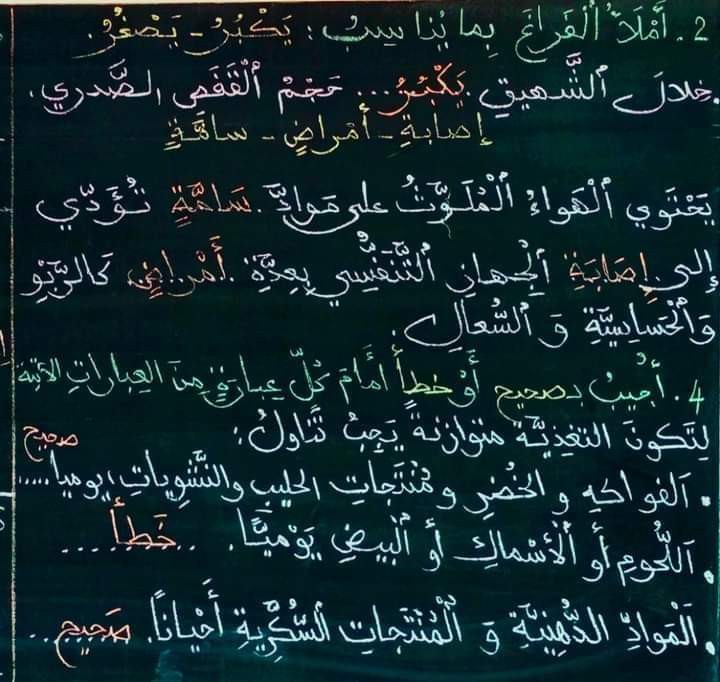 2. أَمْلَأُ ٱلْفَرَاغَ بِمَا يُنَاسِبُ : يَكْبُرُ - يَصْغُرُ.
. خلالَ ٱلشَّهيقِ .يَكْبُرُ... حَجْمُ ٱلْقَفَصِ الصَّدري.
إصابةِ - أمْراضٍ - سامَّةٍ
يَحْتَوي ٱلْهَواءُ ٱلْمُلَوَّثُ على مَوادَّ .سَامَّةٍ تُؤَدّي
إلى .إصَابَةِ ٱلْجِهازِ ٱلتَّنَفُّسِي بِعِدَّةِ .أَمْراضٍ. كَالرَّبْوِ
وَٱلْحَسَاسِيَّةِ وَ ٱلسُّعالِ.
4. أُجيبُ بـصحيح أَوْ خطأ أَمَامَ كُلِّ عِبارَةٍ مِنَ العِباراتِ الآتية
لِتَكونَ التغذِيَّة متوازنةً يَجِبُ تَناوُلُ :
. ٱلفواكِهِ و الخُضَرِ و مُنْتَجاتِ الحليب والنَّشَوِياتِ؛ يوميا..... صحيح
. ٱللُّحومِ أو ٱلْأَسْماكِ أو ٱلْبيضِ يَوْمِيّاً. ..خَطأ.....
. ٱلْمَوادِّ الدُّهْنِيَّةِ وَ ٱلْمُنْتَجاتِ ٱلسُّكَّرِيَّةِ أَحْياناً. صَحيح...